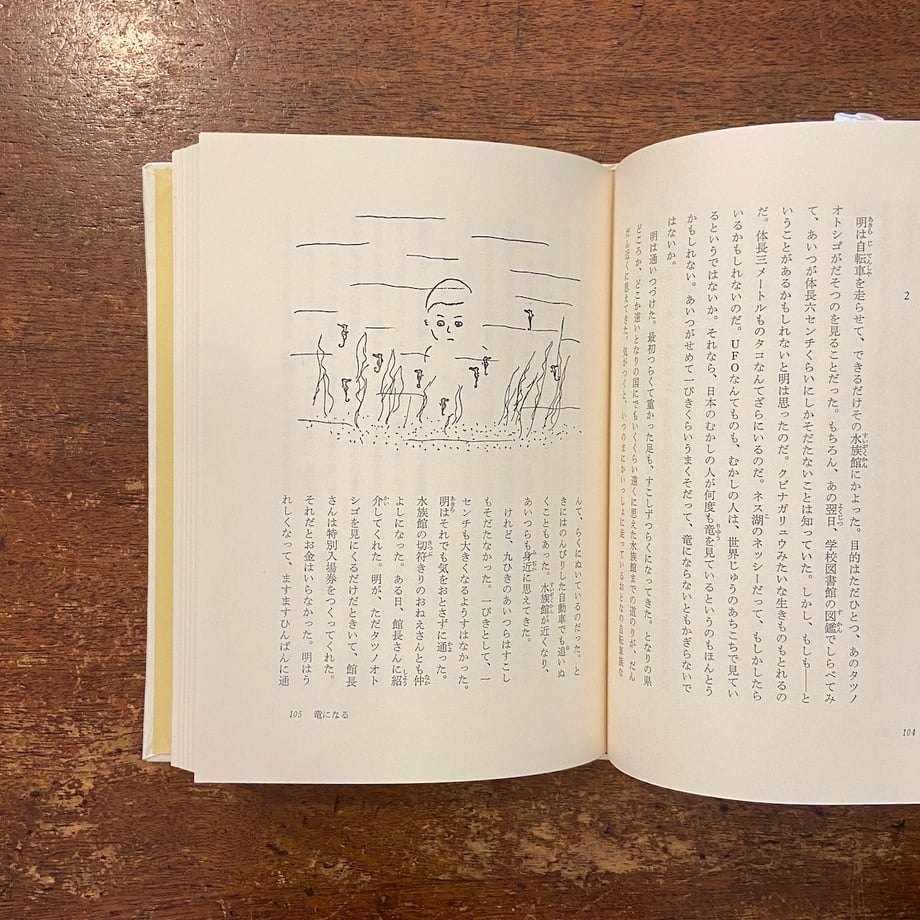 2
明は自転車を走らせて、できるだけその水族館にかよった。目的はただひとつ、あのタツノ
オトシゴがだそつのを見ることだった。もちろん、あの翌日、学校図書館の図鑑でしらべてみ
て、あいつが体長六センチくらいにしかそだたないことは知っていた。しかし、もしも――と
いうことがあるかもしれないと明は思ったのだ。クビナガリュウみたいな生きものもとれるの
だ。体長三メートルものタコなんてざらにいるのだ。ネス湖のネッシーだって、もしかしたら
いるかもしれないのだ。UFOなんてものも、むかしの人は、世界じゅうのあちこちで見てい
るというではないか。それなら、日本のむかしの人が何度も竜を見ているというのもほんとう
かもしれない。あいつがせめて一ぴきくらいうまくそだって、竜にならないともかぎらないで
はないか。
明は通いつづけた。最初つらくて重かった足も、すこしずつらくになってきた。となりの県
どころか、どこか遠いとなりの国にでもいくくらい遠くに思えた水族館までの道のりが、だん
だん近くに思えてきた。気がつくと、いつのまにかいっしょに走っているおとなの自転車族な
104
んて、らくにぬいているのだった。と
きにはのんびりした自動車でも追いぬ
くこともあった。水族館が近くなり、
あいつらも身近に思えてきた。
けれど、九ひきのあいつらはすこし
もそだたなかった。一ぴきとして、一
センチも大きくなるようすはなかった。
明はそれでも気をおとさずに通った。
水族館の切符きりのおねえさんとも仲
よしになった。ある日、館長さんに紹
介してくれた。明が、ただタツノオト
シゴを見にくるだけだときいて、館長
さんは特別入場券をつくってくれた。
それだとお金はいらなかった。明はう
れしくなって、ますますひんぱんに通
105 竜になる